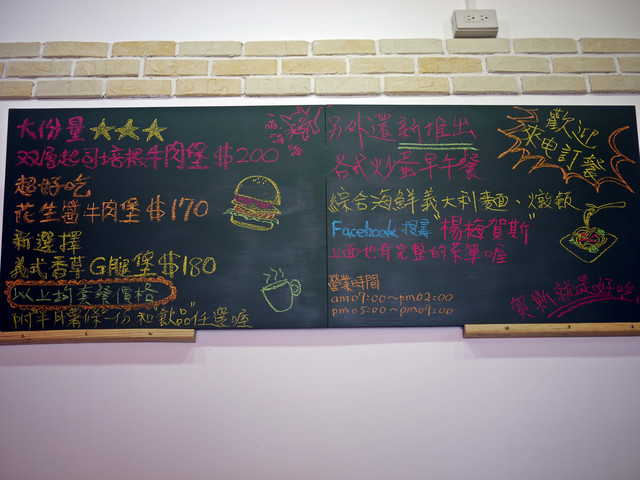 大份量
双層起司培根牛肉堡 $200
超好吃
花生醬牛肉堡 $170
新選擇
義式香草G腿堡 $180
以上均套餐價格
附半月薯條一份和飲品任選喔
另外還新推出
各式炒蛋早午餐
綜合海鮮義大利麵、燉飯
Facebook 搜尋 楊梅賀斯
上面也有完整的菜單喔
營業時間
am07:00~pm02:00
pm05:00~pm09:00
歡迎
來申訂餐
賀斯就是好吃